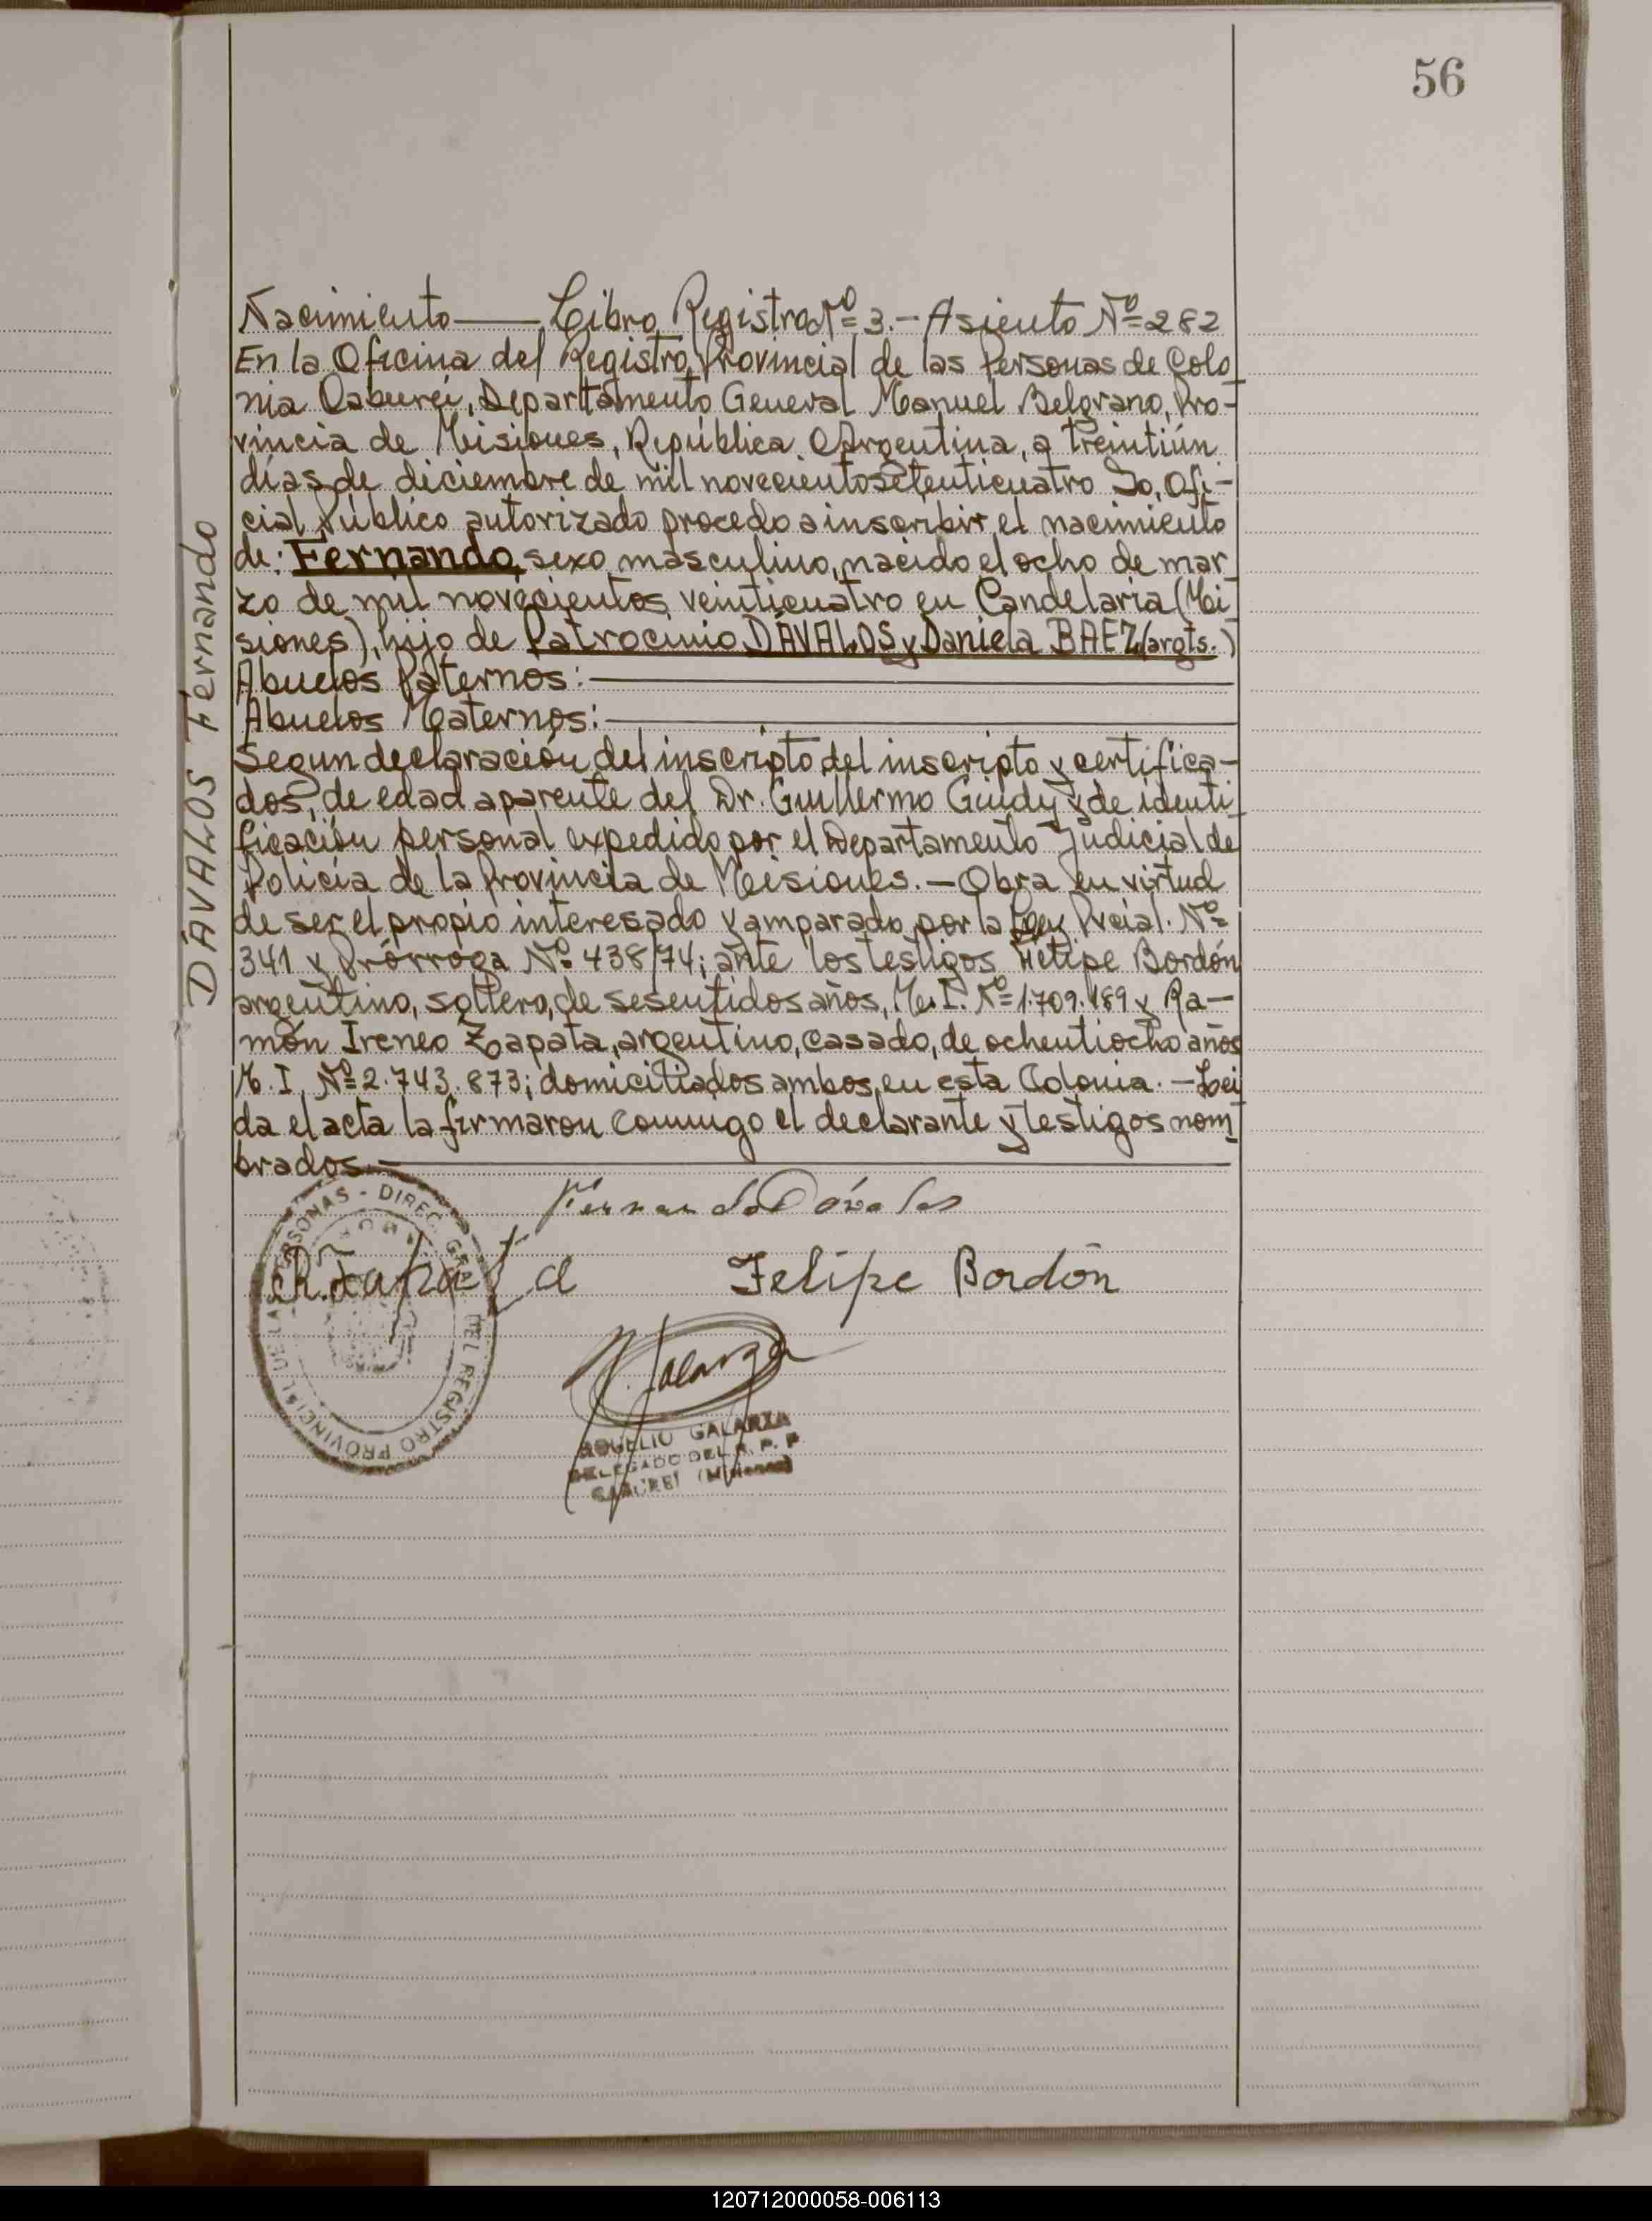 56
DÁVALOS Fernando
Nacimiento — Libro Registro Nº 3.- Asiento Nº 282
En la Oficina del Registro Provincial de las Personas de Colo
nia Caburéi, Departamento General Manuel Belgrano, Pro-
vincia de Misiones, República Argentina, a treintiún
días de diciembre de mil novecientosetenticuatro Yo, Ofi-
cial Público autorizado procedo a inscribir el nacimiento
de: Fernando, sexo masculino, nacido el ocho de mar
zo de mil novecientos veinticuatro en Candelaria (Mi
siones), hijo de Patrocinio DÁVALOS y Daniela BAEZ (argts.)
Abuelos Paternos:
Abuelos Maternos:
Segun declaración del inscripto del inscripto y certifica-
dos, de edad aparente del Dr. Guillermo Guidy y de identi
ficación personal expedido por el Departamento Judicial de
Policía de la Provincia de Misiones. — Obra en virtud
de ser el propio interesado y amparado por la Ley Pvcial. Nº
341 y Prórroga Nº 438/74; ante los testigos Felipe Bordón
argentino, soltero, de sesentidos años, M. I. Nº 1.709.189 y Ra-
món Ireneo Zapata, argentino, casado, de ochentiocho años
M. I. Nº 2.743.873; domiciliados ambos en esta Colonia. — Leí
da el acta la firmaron conmigo el declarante y testigos nom
brados
Fernando Dávalos
R. Zapata
Felipe Bordón
Galarza
DIREC. GRAL. DEL REGISTRO PROVINCIAL DE LAS PERSONAS
ROGELIO GALARZA
DELEGADO DEL R. P. P.
CABUREI (Misiones)
120712000058-006113